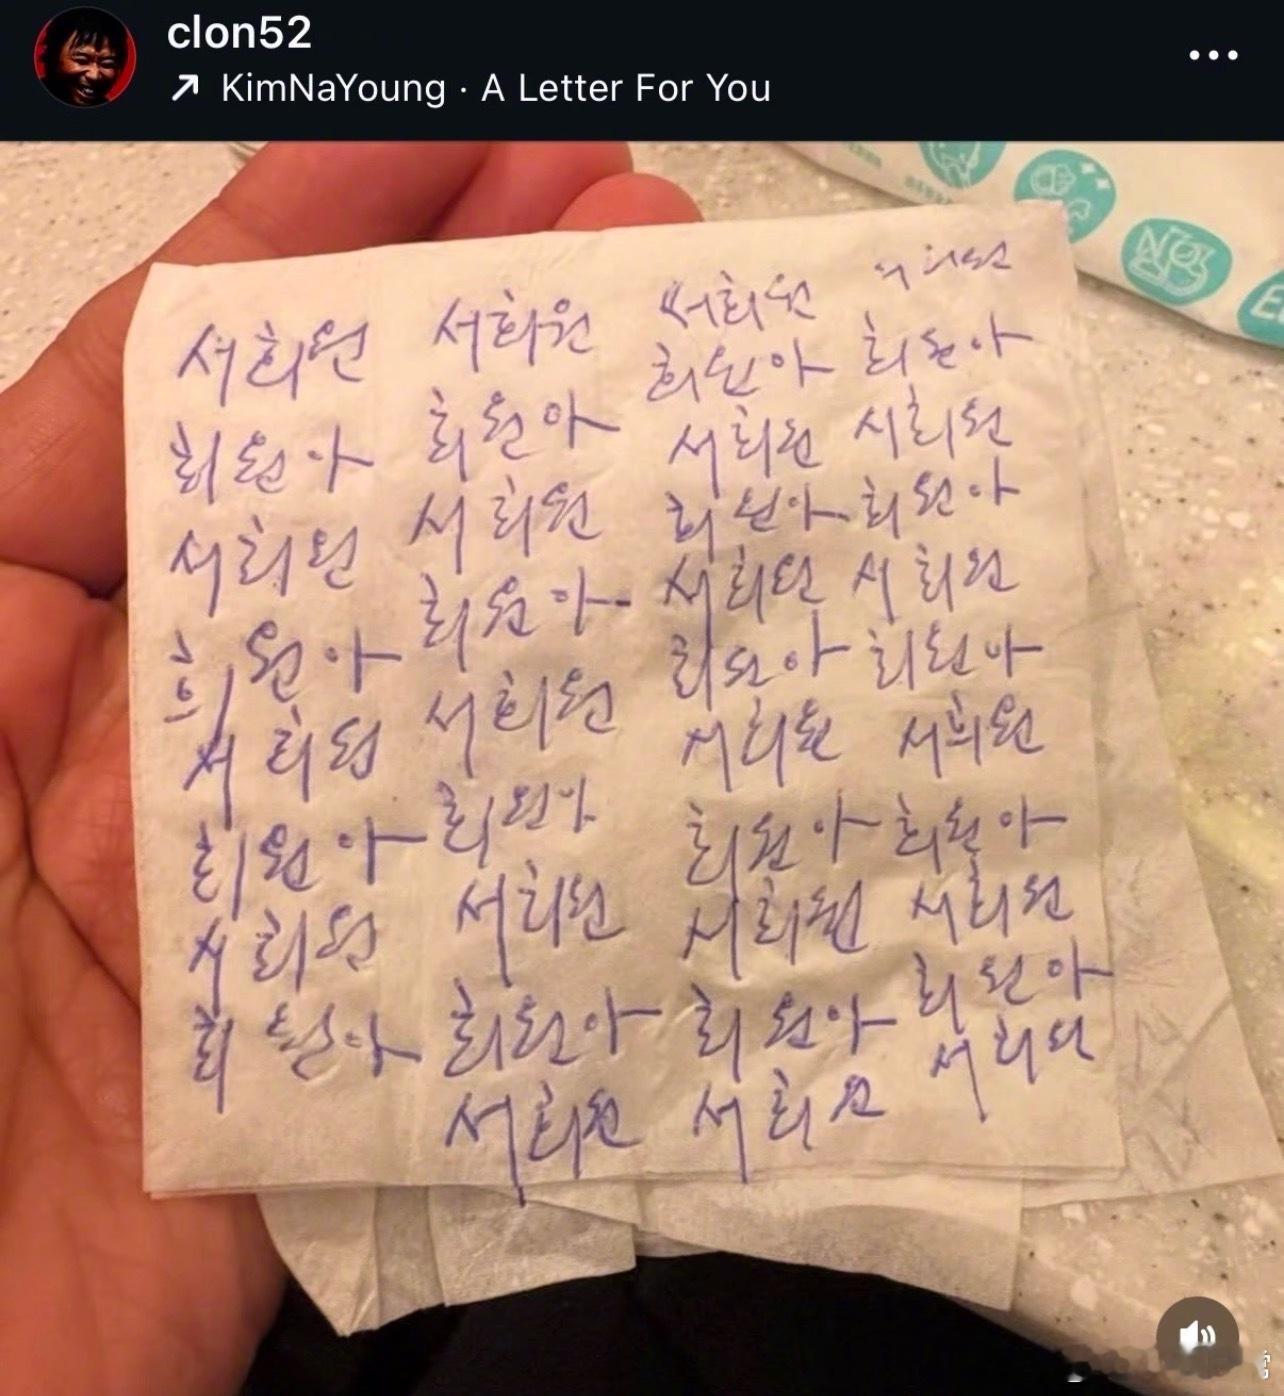 clon52
KimNaYoung · A Letter For You
서희원 서희원 서희원
희원아 희원아 희원아 희원아
서희원 서희원 서희원 서희원
희원아 희원아 희원아 희원아
서희원 서희원 서희원 서희원
희원아 희원아 희원아 희원아
서희원 서희원 서희원 서희원
희원아 희원아 희원아 희원아
서희원 서희원 서희원
희원아 희원아 희원아
서희원 서희원 서희원
NO